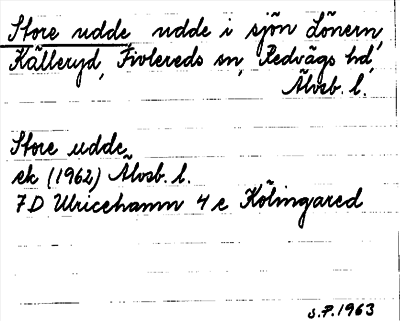 Store udde udde i sjön Lönern,
Källeryd, Fivlereds sn, Redvägs hd,
Älvsb. l.
Store udde
ek (1962) Älvsb. l.
7D Ulricehamn 4 e Kölingared
S.P. 1963